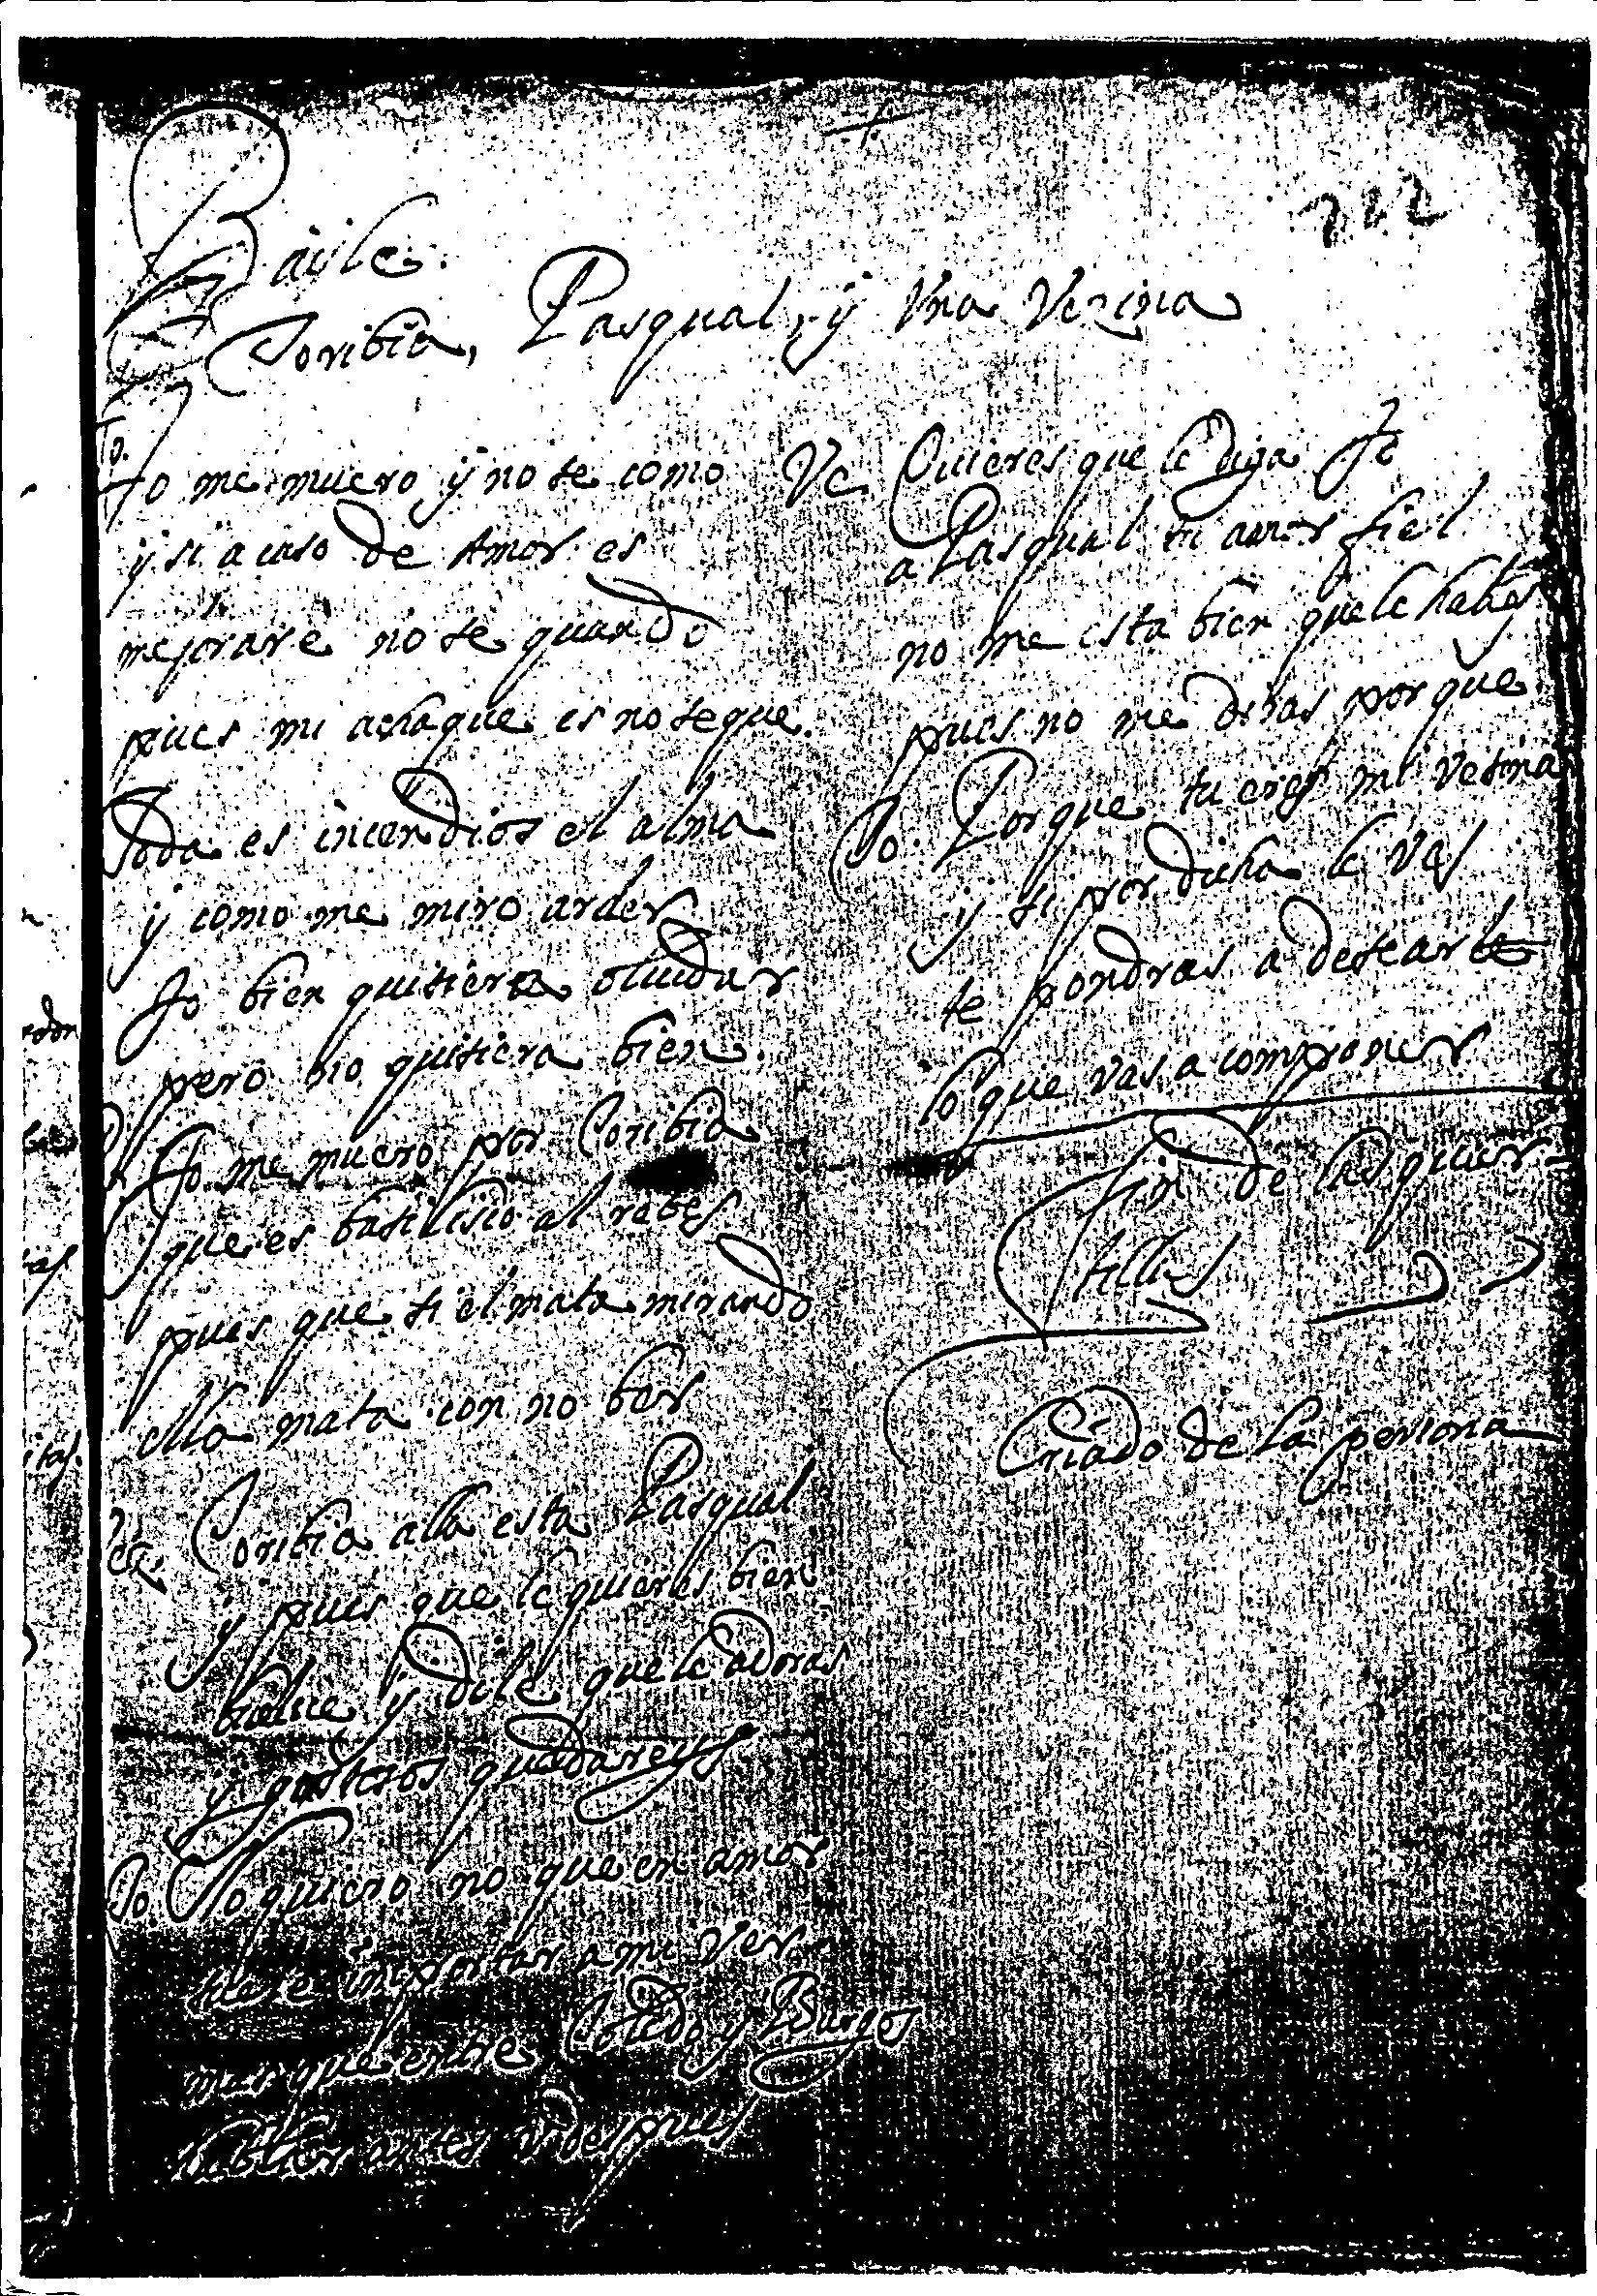 212
Baile.
Toribia, Pasqual, y Vna Vezina
To.
Yo me muero y no se como
y si acaso de Amor es
mejorare no se quando
pues mi achaque es no se que.
Toda es incendios el alma
y como me miro arder
Yo bien quisiera oluidar
pero no quisiera bien.
P. Yo me muero por Toribia
que es basilisco al rebes
pues que si el mata mirando
ella mata con no ber
Ve. Toribia alla esta Pasqual
y pues que le quieres bien
buelue y dile que le adoras
y gustosos quedareys
To. No quiero no que en amor
suele importar a mi ver
mas que entre Toledo y Burgos
hablar antes v despues
Ve Quieres que le diga Yo
a Pasqual tu amor fiel
no me esta bien que le hables
pues no me diras porque
To. Porque tu eres mi vesina
y si por dicha le ves
te pondras a desearle
lo que vas a componer
fin de las
Criado de la persona